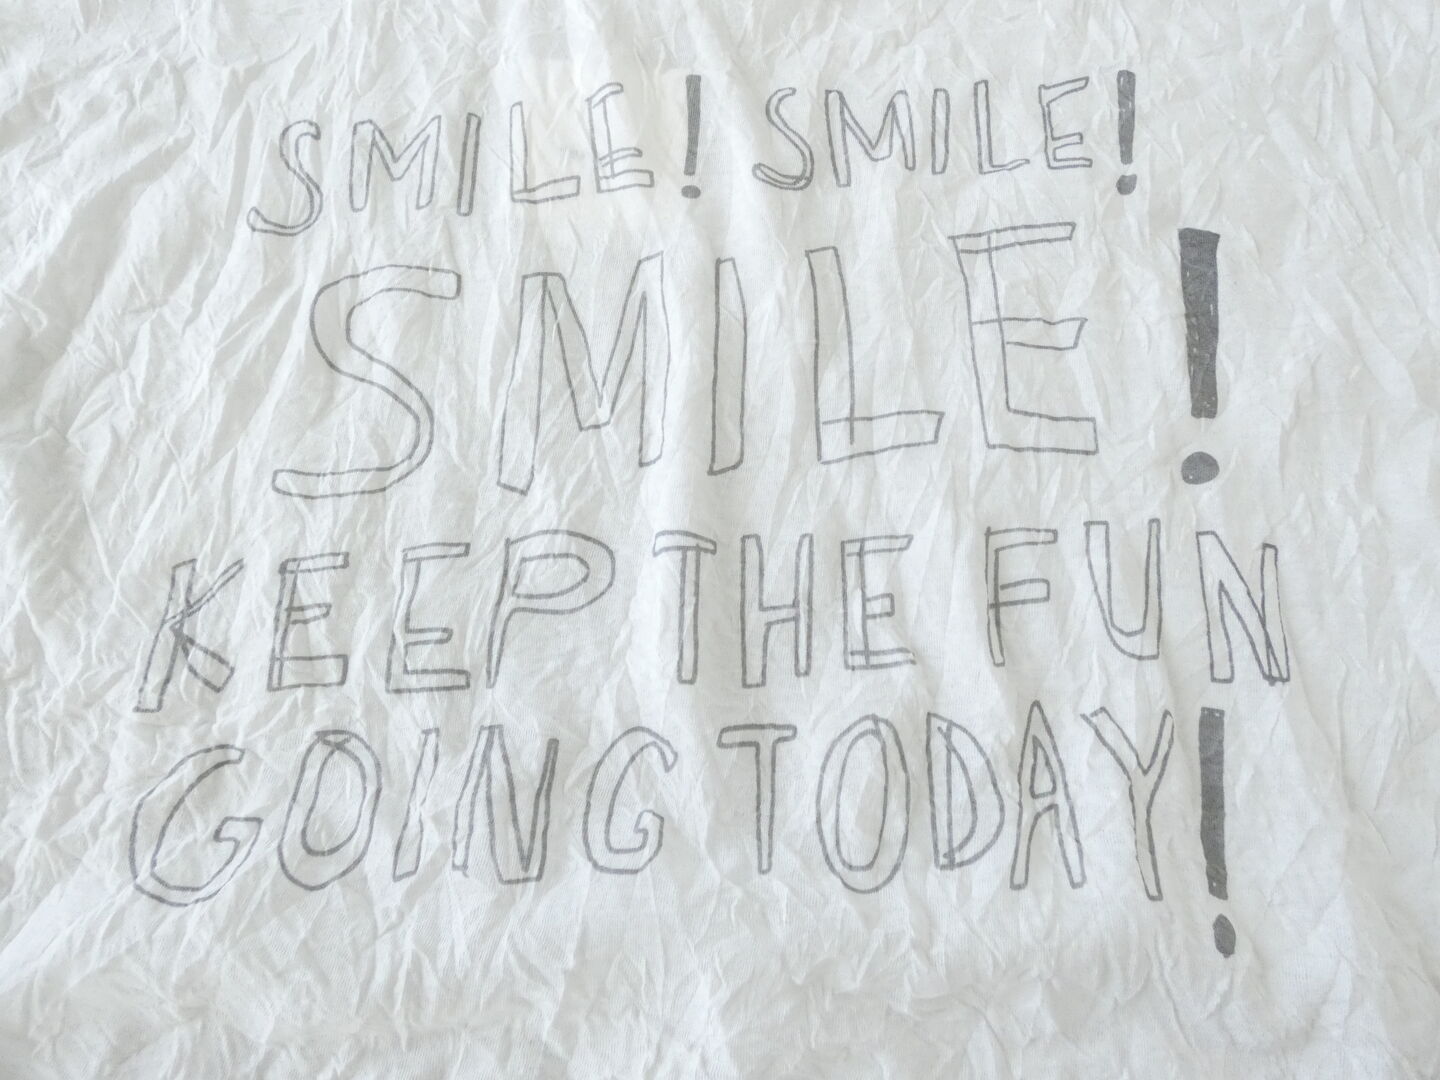 SMILE! SMILE!
SMILE!
KEEP THE FUN
GOING TODAY!